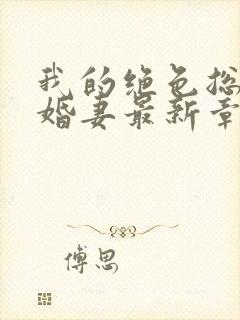 我的绝色总
婚妻最新章
傅思